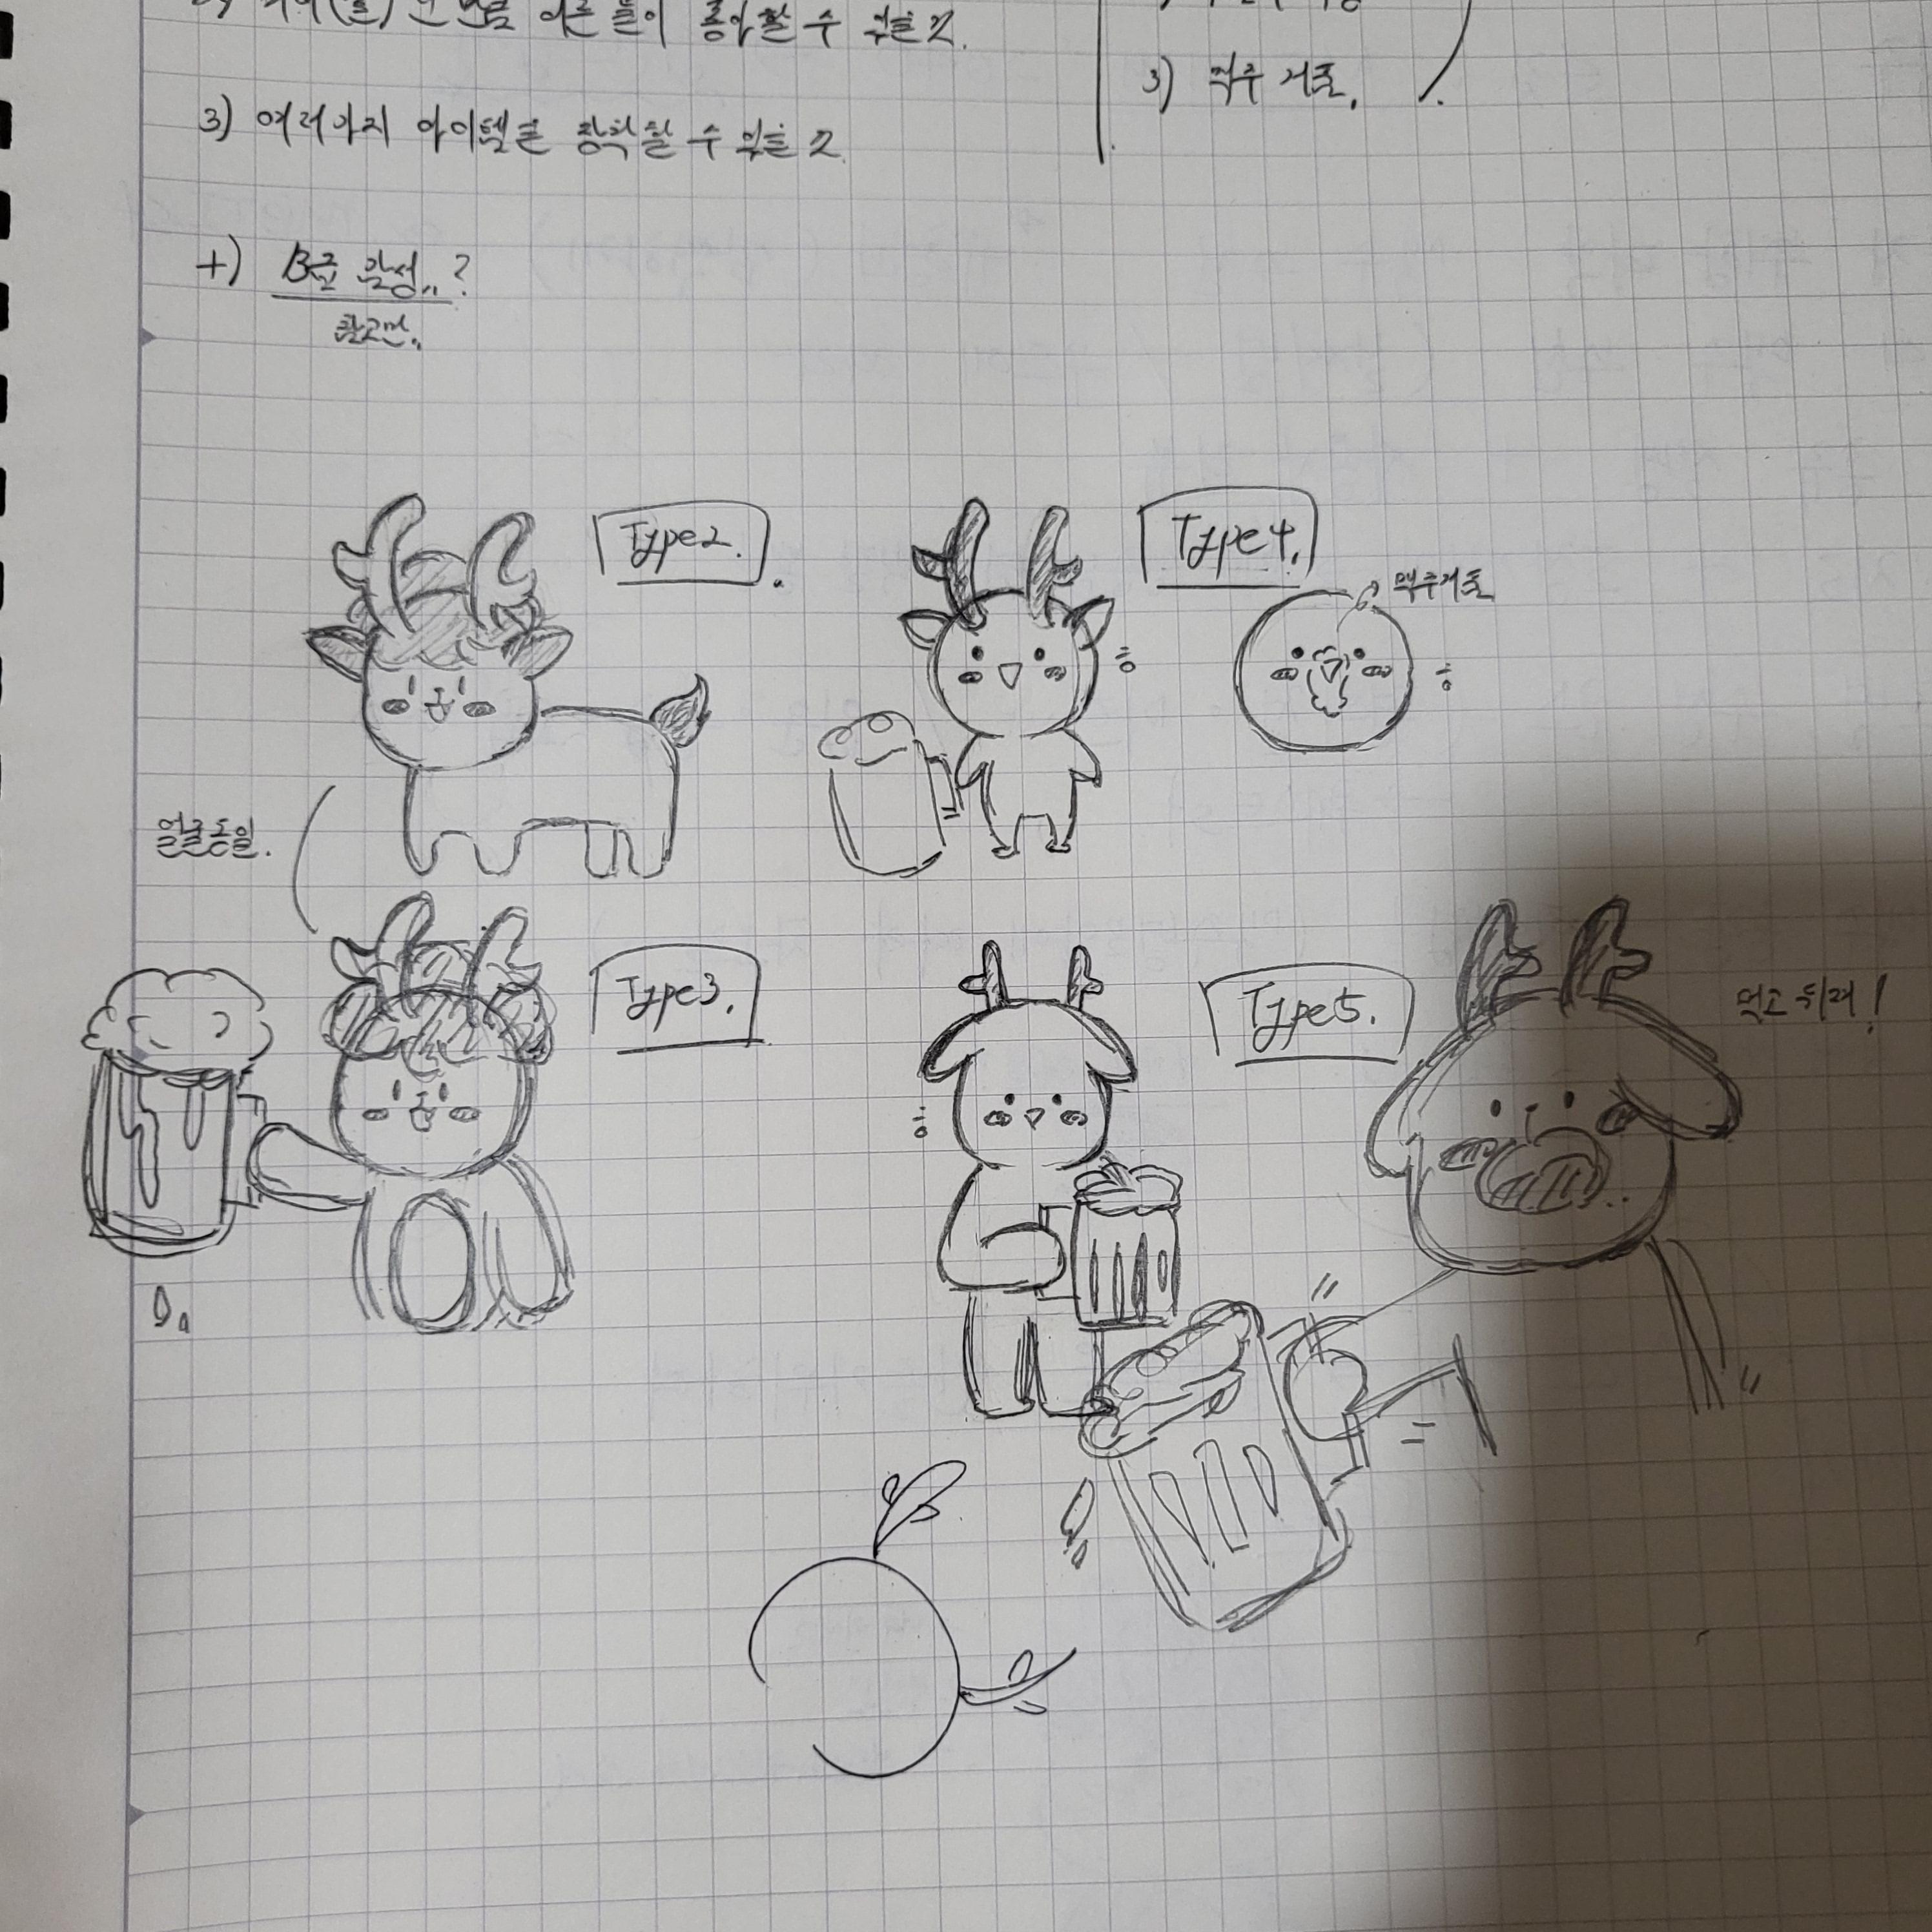 어른들이 좋아할 수 있을 것.
3) 맥주 거품.
3) 여러가지 아이템을 장착할 수 있을 것.
+) B급 감성..?
Type2.
Type4.
맥주거품
얼굴동일.
Type3.
Type5.
먹고 뒤져!